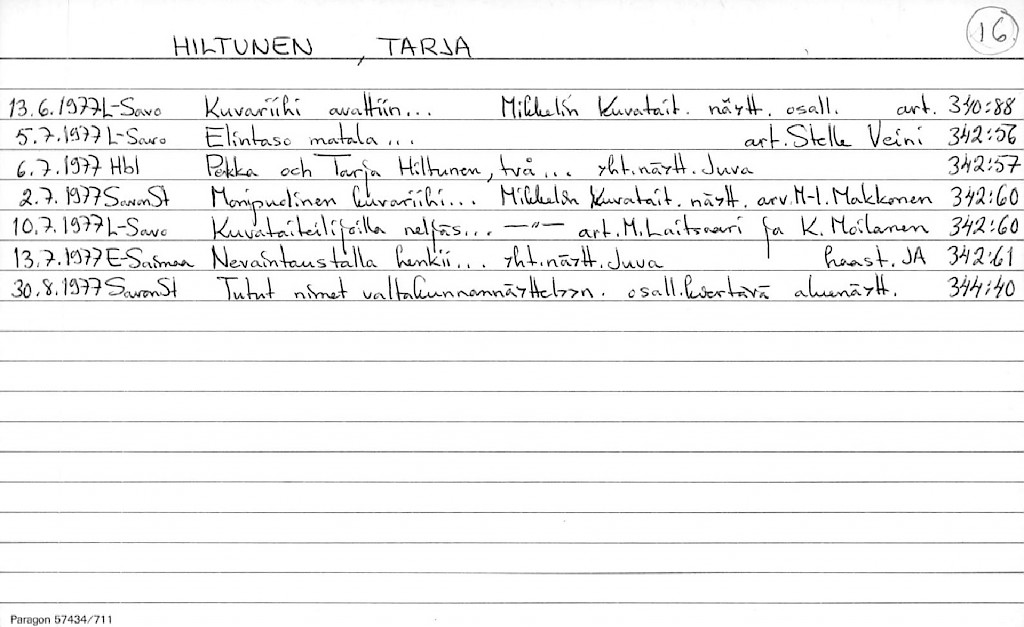 16.
HILTUNEN, TARJA
13.6.1977 L-Savo Kuvariihi avattiin... Mikkelin Kuvatait. näytt. osall. art. 340:88
5.7.1977 L-Savo Elintaso matala... art. Stelle Veini 342:56
6.7.1977 Hbl Pekka och Tarja Hiltunen, två... yht.näytt. Juva 342:57
2.7.1977 SavonSt Monipuolinen kuvariihi... Mikkelin Kuvatait. näytt. arv. M-L Makkonen 342:60
10.7.1977 L-Savo Kuvataiteilijoilla neljäs... —"— art. M. Laitsaari ja K. Moilanen 342:60
13.7.1977 E-Saimaa Nevaintaustalla henkii... yht.näytt. Juva haast. JA 342:61
30.8.1977 SavonSt Tutut nimet valtakunnannäyttelyyn. osall. kiertävä aluenäytt. 344:40
Paragon 57434/711